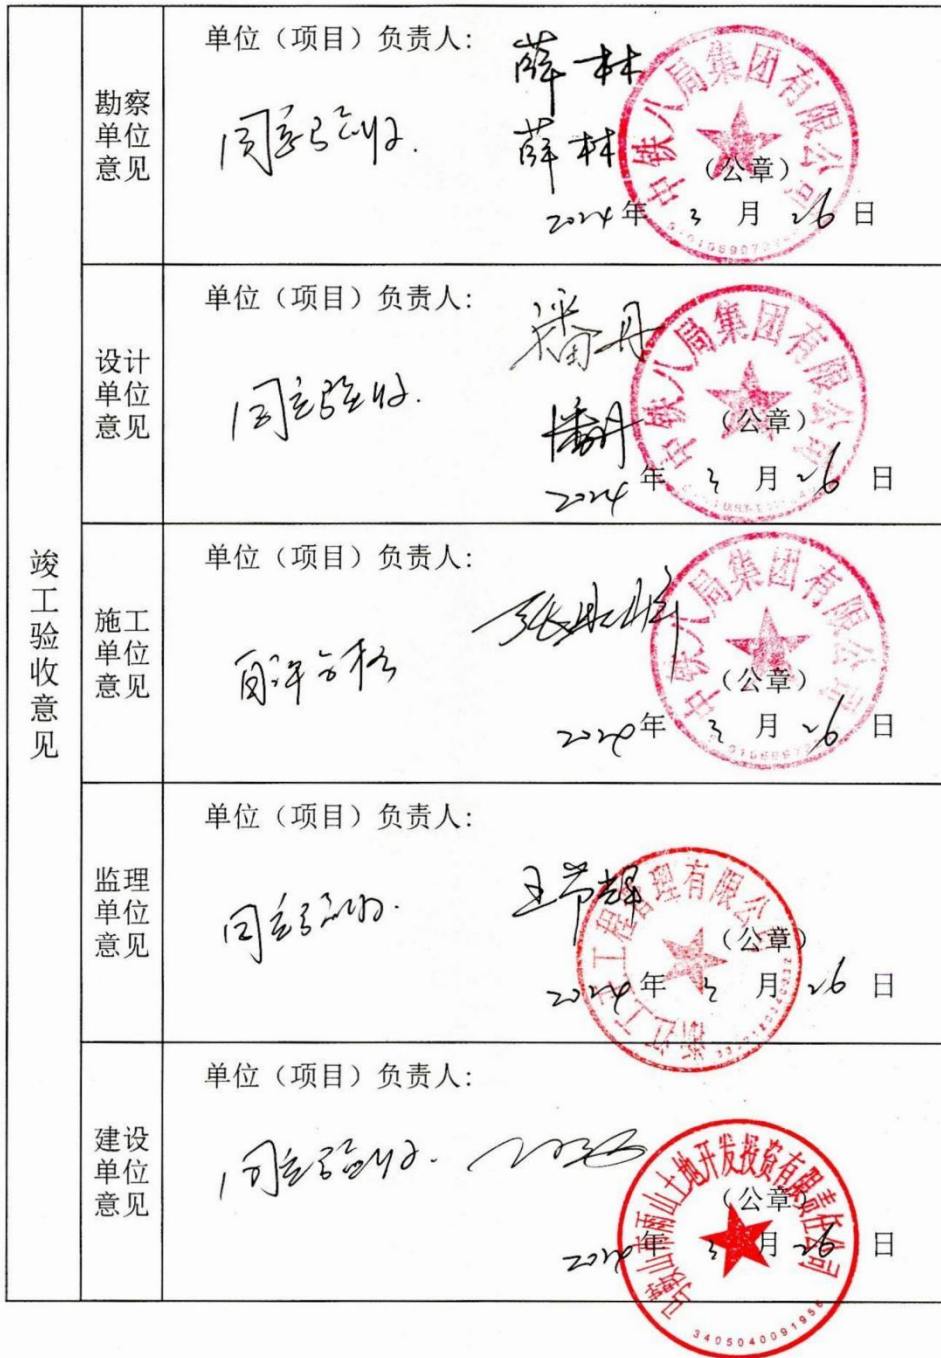 竣工验收意见
勘察单位意见
单位（项目）负责人：
薛林
同意验收.
薛林
中铁八局集团有限公司
（公章）
2024年 3 月 26 日
设计单位意见
单位（项目）负责人：
潘丹
同意验收.
潘丹
中铁八局集团有限公司
（公章）
2024年 3 月 26 日
施工单位意见
单位（项目）负责人：
自评合格
中铁八局集团有限公司
（公章）
2024年 3 月 26 日
监理单位意见
单位（项目）负责人：
同意验收.
工程管理有限公司
（公章）
2024年 3 月 26 日
建设单位意见
单位（项目）负责人：
同意验收.
马鞍山市雨山土地开发投资有限责任公司
（公章）
2024年 3 月 26 日
3405040091956